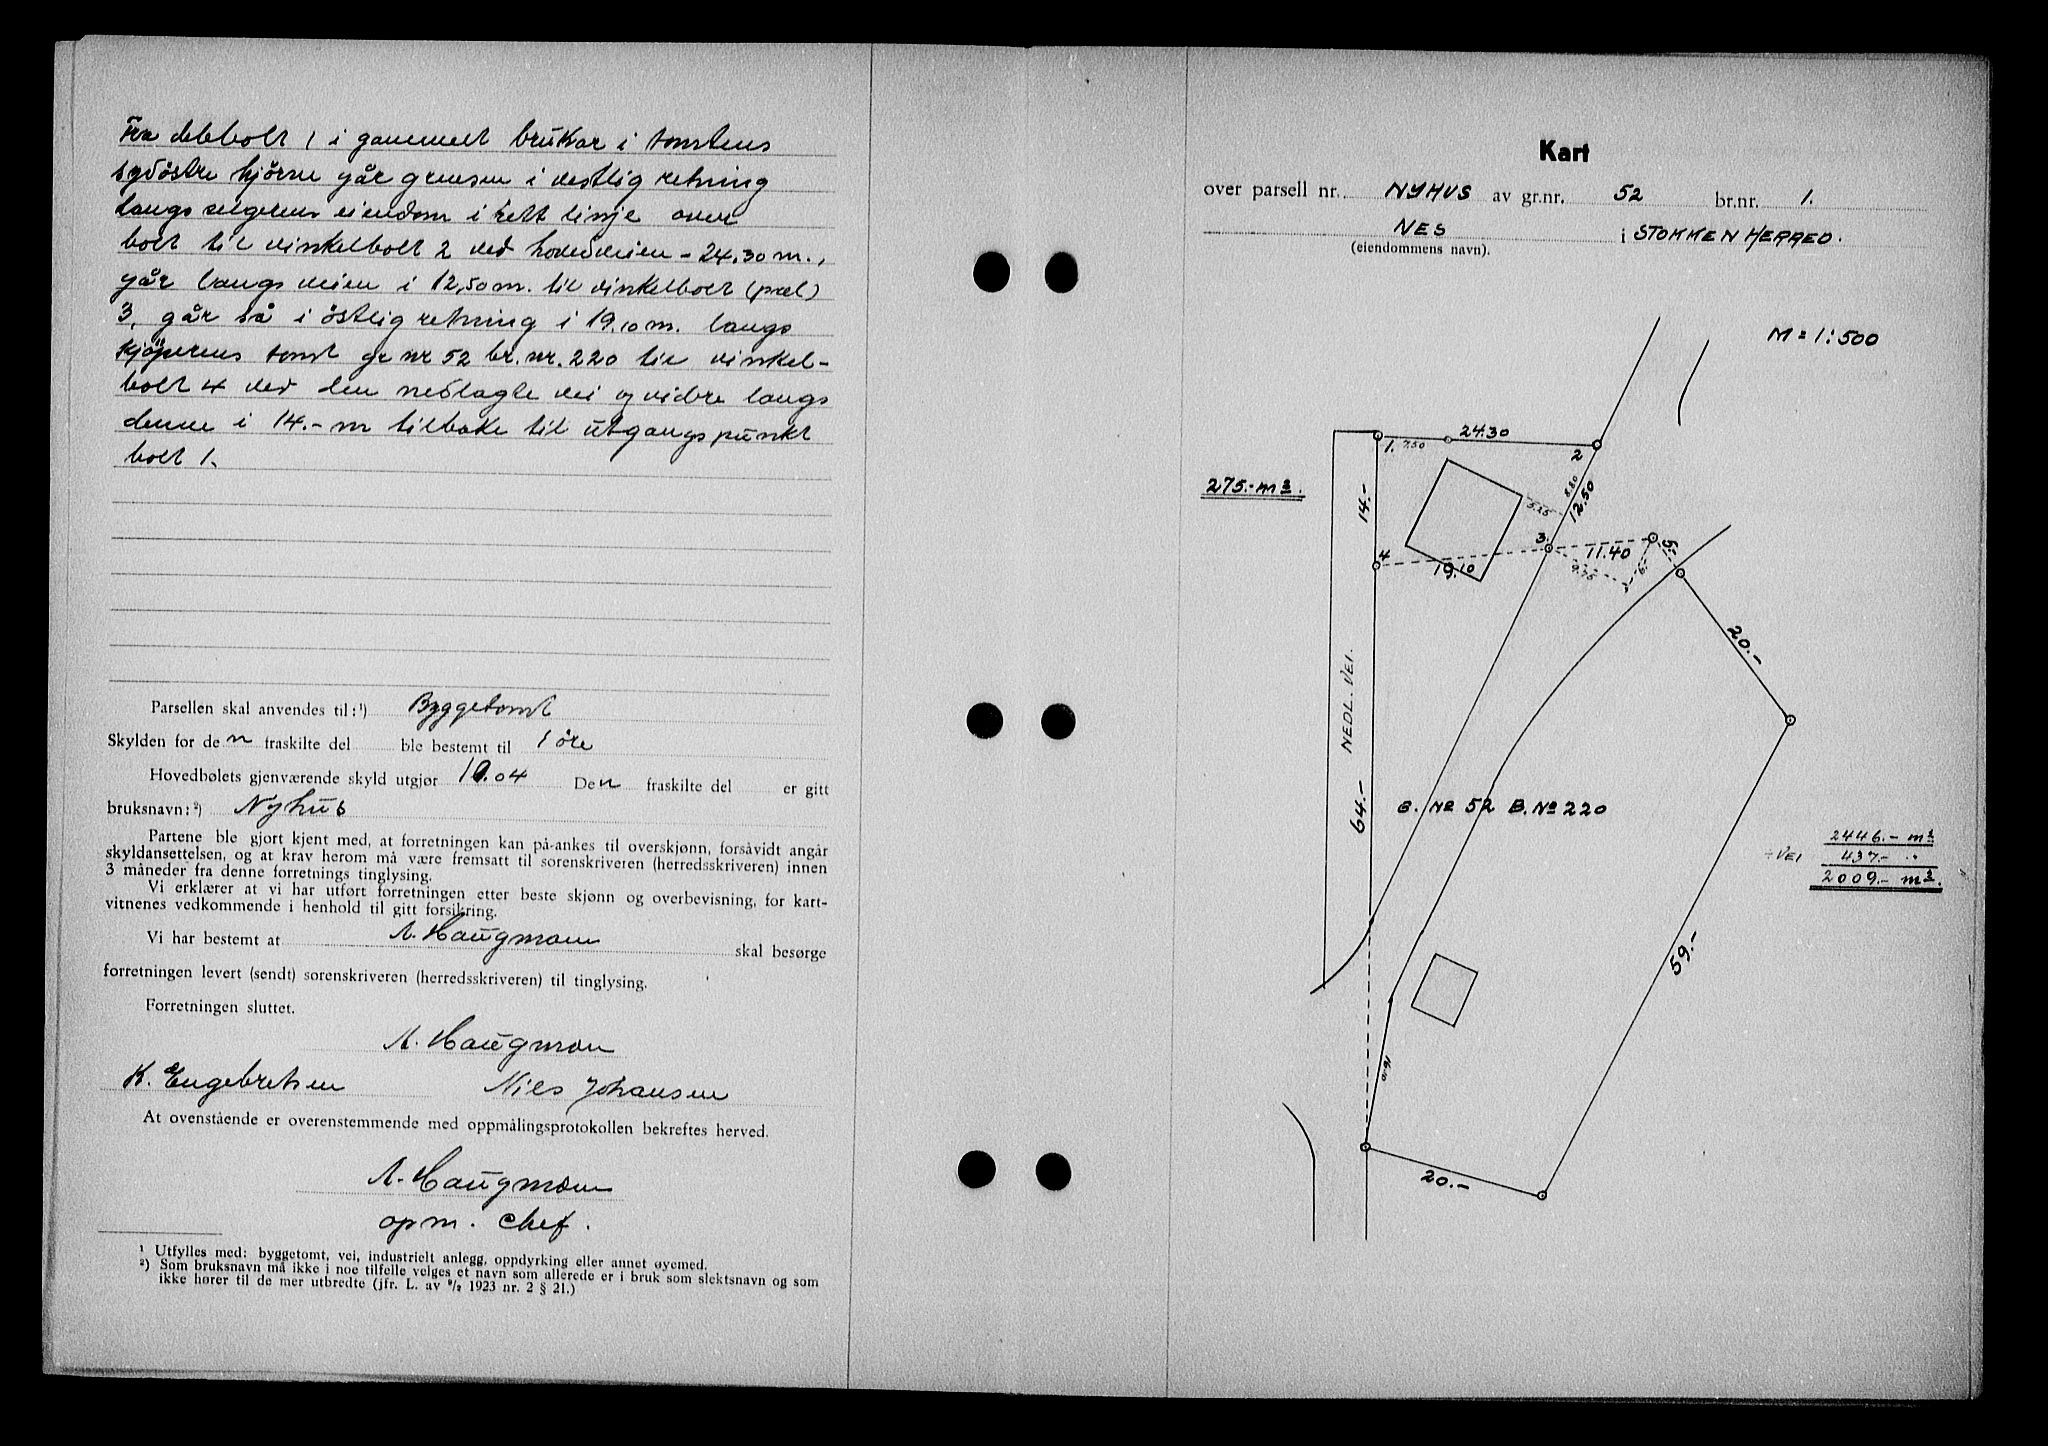 Fra delebolt 1 i gammelt brukar i tomtens
sydöstre hjörne går grensen i vestlig retning
langs selgerens eiendom i rett linje over
bolt til vinkelbolt 2 ved hovedveien - 24.30 m.,
går langs veien i 12,50 m. til vinkelbolt (pæl)
3, går så i östlig retning i 19.10 m. langs
kjöperens tomt gr nr 52 br. nr. 220 til vinkel-
bolt 4 ved den nedlagte vei og videre langs
denne i 14.- m tilbake til utgangspunkt
bolt 1.
Parsellen skal anvendes til:¹) Byggetomt
Skylden for den fraskilte del ble bestemt til 1 øre
Hovedbølets gjenværende skyld utgjør 10.04 Den fraskilte del er gitt
bruksnavn:²) Nyhus
Partene ble gjort kjent med, at forretningen kan på-ankes til overskjønn, forsåvidt angår
skyldansettelsen, og at krav herom må være fremsatt til sorenskriveren (herredsskriveren) innen
3 måneder fra denne forretnings tinglysing.
Vi erklærer at vi har utført forretningen etter beste skjønn og overbevisning, for kart-
vitnenes vedkommende i henhold til gitt forsikring.
Vi har bestemt at A. Haugmoen skal besørge
forretningen levert (sendt) sorenskriveren (herredsskriveren) til tinglysing.
Forretningen sluttet.
A. Haugmoen
K. Engebretsen Nils Johansen
At ovenstående er overenstemmende med oppmålingsprotokollen bekreftes herved.
A. Haugmoen
opm. chef.
¹ Utfylles med: byggetomt, vei, industrielt anlegg, oppdyrking eller annet øyemed.
²) Som bruksnavn må ikke i noe tilfelle velges et navn som allerede er i bruk som slektsnavn og som
ikke hører til de mer utbredte (jfr. L. av ⁹/₂ 1923 nr. 2 § 21.)
Kart
over parsell nr. NYHUS av gr.nr. 52 br.nr. 1.
NES i STOKKEN HERRED.
(eiendommens navn).
M = 1:500
24.30
1. 7.50
2
275.- m².
14.-
8.80
12.50
5.25
3.
4
11.40
19.10
9.75
6.-
5.-
20.-
NEDL. VEI.
64.-
G. No 52 B. No 220
2446.- m²
÷ VEI 437.- "
2009.- m².
59.-
16.10
20.-